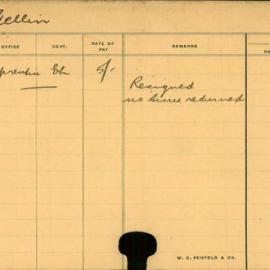 Gellin
OFFICE DEPT. RATE OF PAY REMARKS
prentice 5/- Resigned
no time returned
W. C. PENFOLD & CO.